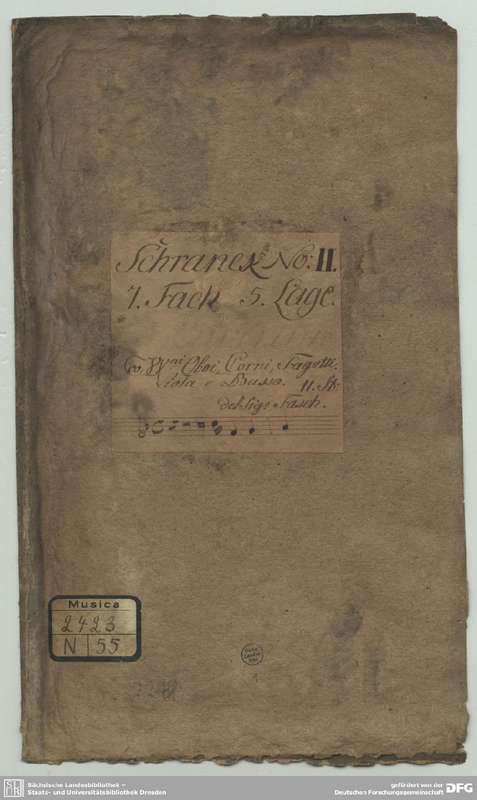 Schranck No: II.
7. Fach 5. Lage.
Co VV.ni Oboi, Corni, Fagotti.
Viola e Basso. 11. St:
del Sigr Fasch.
Musica
2423
N 55
Sächsische Landesbibliothek –
Staats- und Universitätsbibliothek Dresden
gefördert von der
Deutschen Forschungsgemeinschaft
DFG